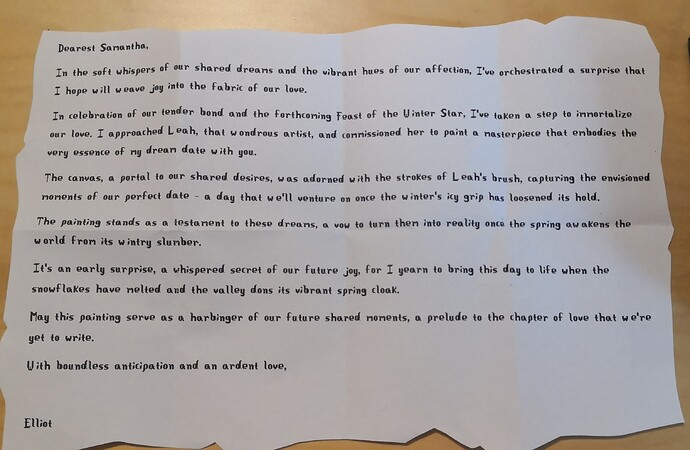 Dearest Samantha,
In the soft whispers of our shared dreams and the vibrant hues of our affection, I've orchestrated a surprise that
I hope will weave joy into the fabric of our love.
In celebration of our tender bond and the forthcoming Feast of the Winter Star, I've taken a step to immortalize
our love. I approached Leah, that wondrous artist, and commissioned her to paint a masterpiece that embodies the
very essence of my dream date with you.
The canvas, a portal to our shared desires, was adorned with the strokes of Leah's brush, capturing the envisioned
moments of our perfect date - a day that we'll venture on once the winter's icy grip has loosened its hold.
The painting stands as a testament to these dreams, a vow to turn them into reality once the spring awakens the
world from its wintry slumber.
It's an early surprise, a whispered secret of our future joy, for I yearn to bring this day to life when the
snowflakes have melted and the valley dons its vibrant spring cloak.
May this painting serve as a harbinger of our future shared moments, a prelude to the chapter of love that we're
yet to write.
With boundless anticipation and an ardent love,
Elliot